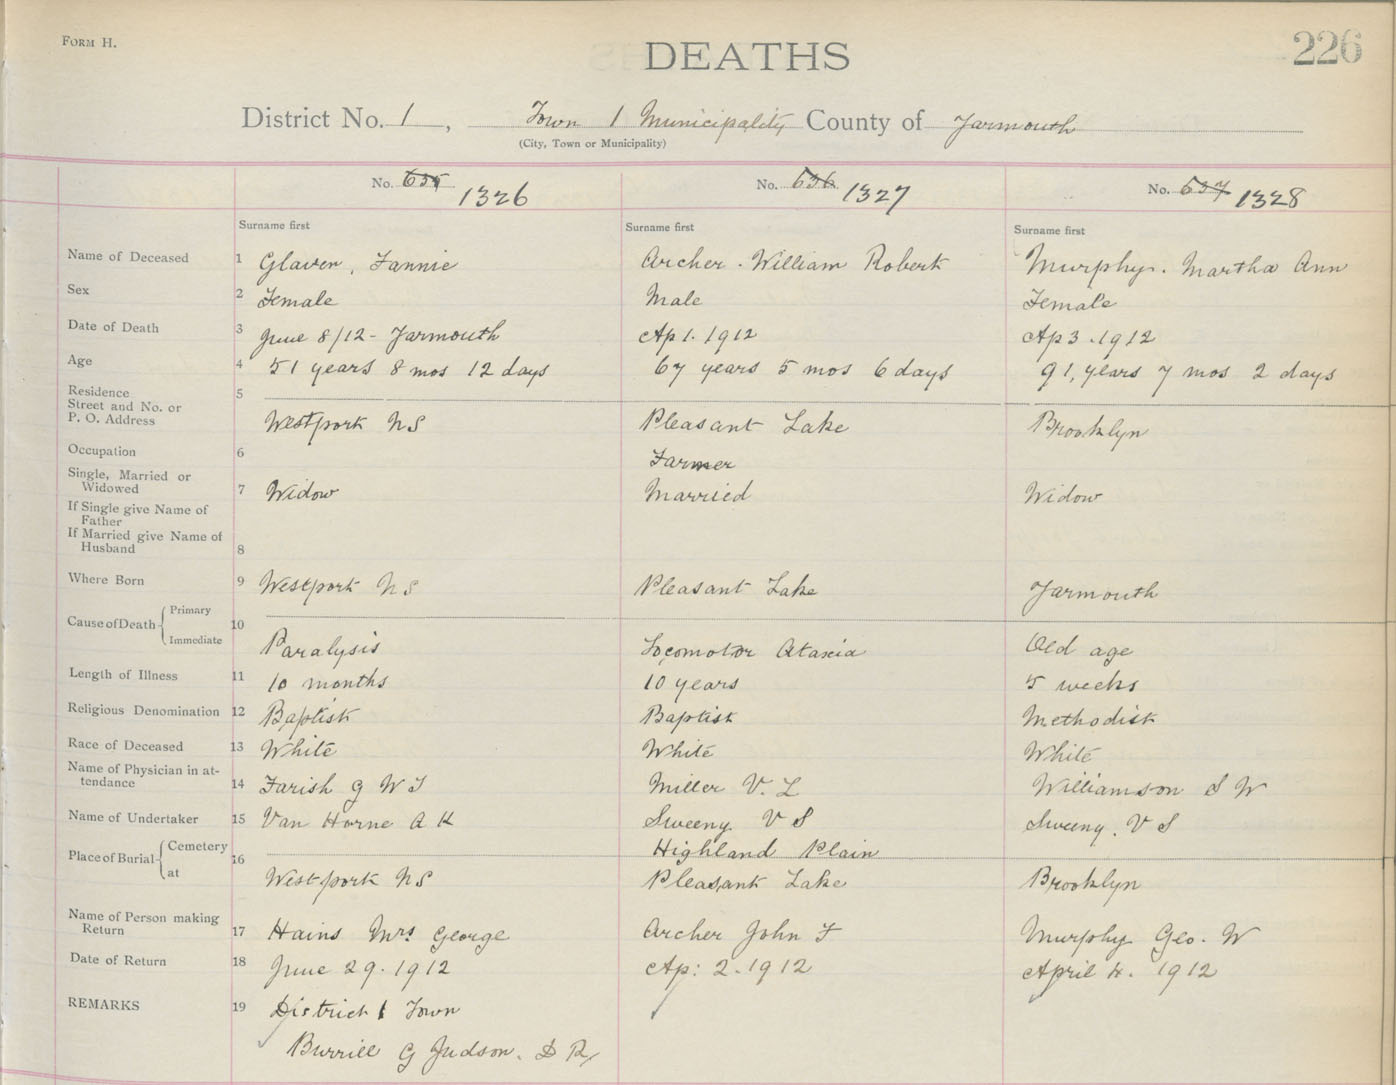 FORM H.
DEATHS
226
District No. 1, Town 1 Municipality County of Yarmouth
(City, Town or Municipality)
No. 635 1326 No. 636 1327 No. 637 1328
Surname first Surname first Surname first
Name of Deceased 1 Glaven, Fannie Archer. William Robert Murphy. Martha Ann
Sex 2 Female Male Female
Date of Death 3 June 8/12 - Yarmouth Ap 1. 1912 Ap 3. 1912
Age 4 51 years 8 mos 12 days 67 years 5 mos 6 days 91, years 7 mos 2 days
Residence 5
Street and No. or
P. O. Address Westport NS Pleasant Lake Brooklyn
Occupation 6 Farmer
Single, Married or
Widowed 7 Widow Married Widow
If Single give Name of
Father
If Married give Name of
Husband 8
Where Born 9 Westport NS Pleasant Lake Yarmouth
Cause of Death Primary 10
Immediate Paralysis Locomotor Ataxia Old age
Length of Illness 11 10 months 10 years 5 weeks
Religious Denomination 12 Baptist Baptist Methodist
Race of Deceased 13 White White White
Name of Physician in at-
tendance 14 Farish G W T Miller V. L Williamson S W
Name of Undertaker 15 Van Horne A K Sweeny V S Sweeny. V S
Place of Burial Cemetery 16 Highland Plain
at Westport NS Pleasant Lake Brooklyn
Name of Person making
Return 17 Hains Mrs George Archer John F Murphy Geo. W
Date of Return 18 June 29. 1912 Ap: 2. 1912 April 4. 1912
REMARKS 19 District 1 Town
Burrill G Judson. D R